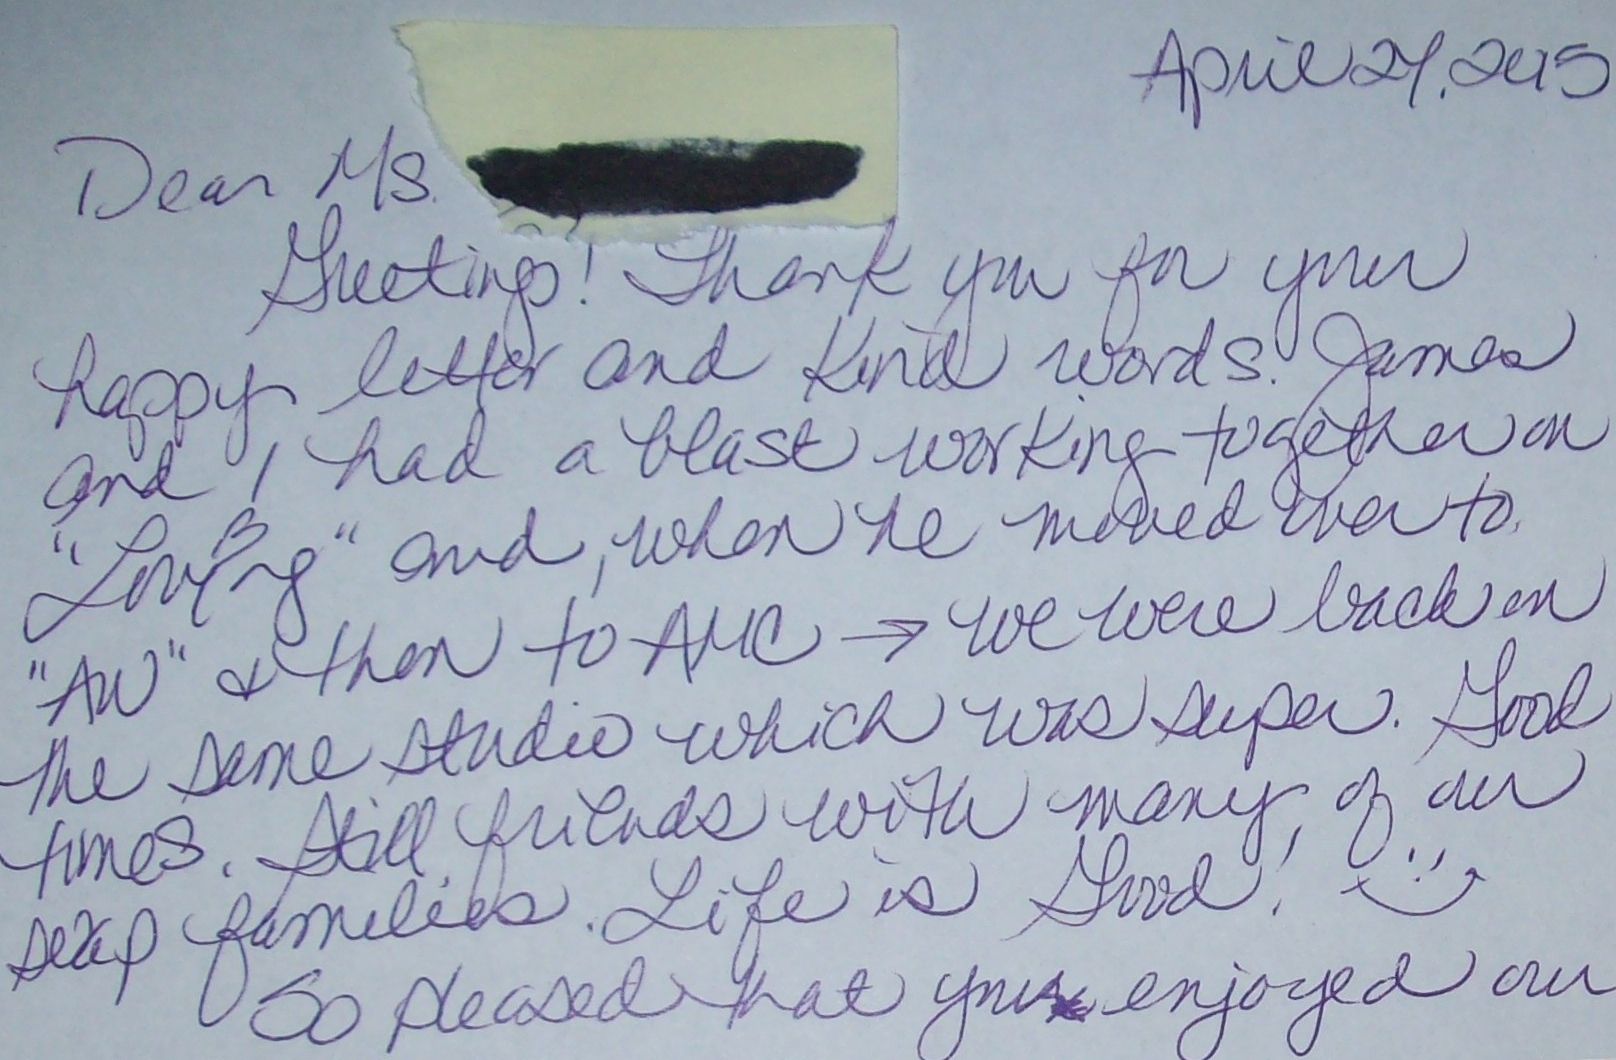 April 27, 2015
Dear Ms.
Greetings! Thank you for your
happy letter and kind words. James
and I had a blast working together on
"Loving" and, when he moved over to
"AW" & then to AMC → we were back in
the same studio which was super. Good
times. Still friends with many of our
soap families. Life is Good!
So pleased that you enjoyed our